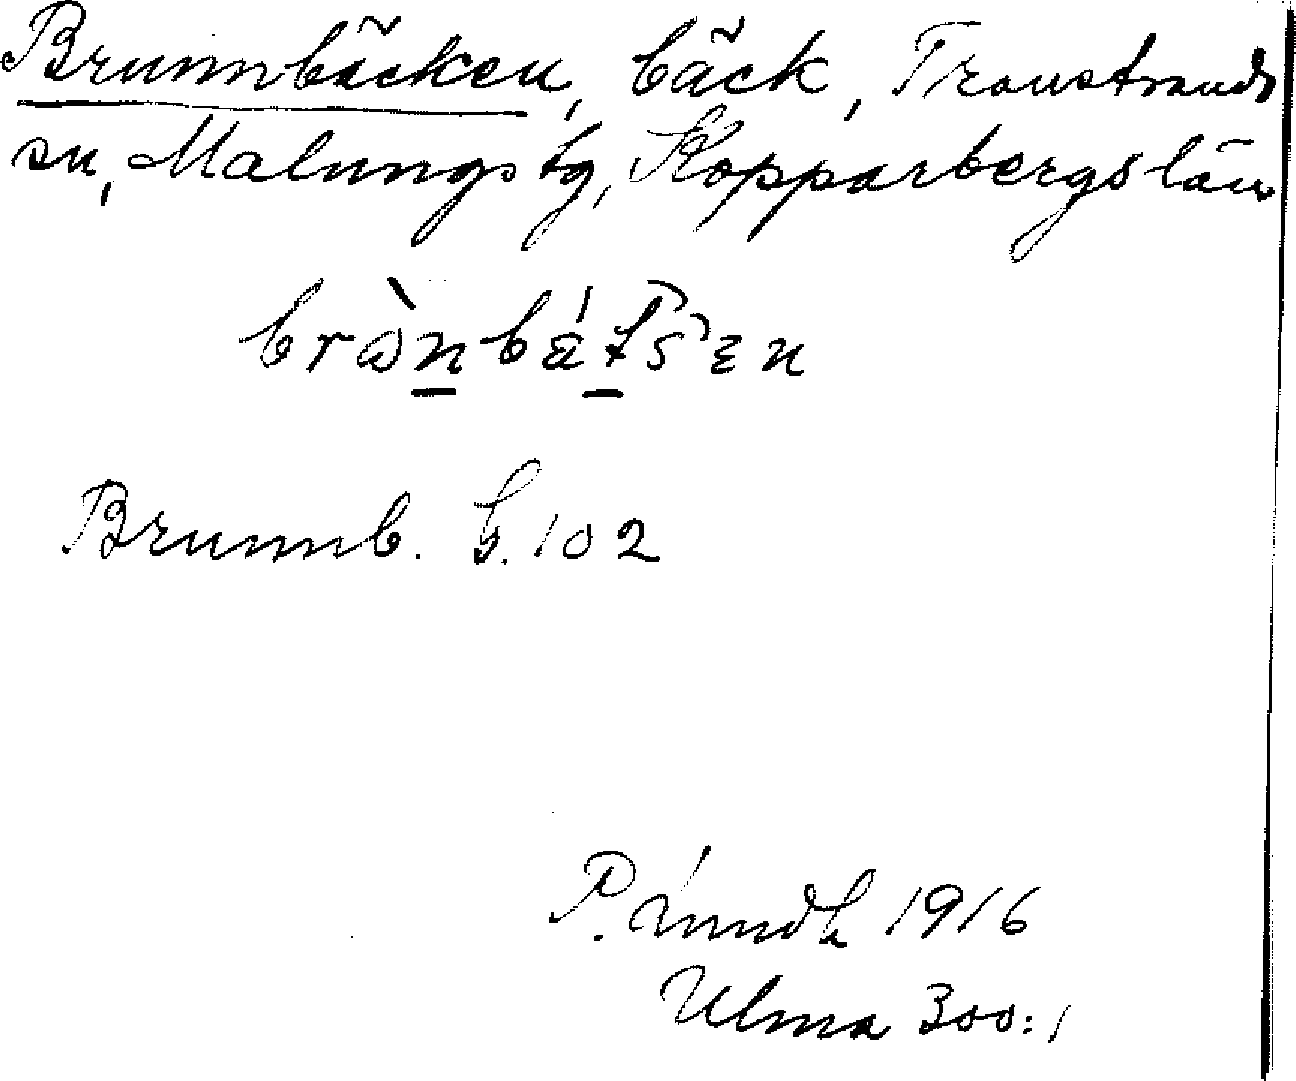 Brunnbäcken, bäck, Transtrands
sn, Malungs tg, Kopparbergs län
bràn̲bát̲s̑ɛn
Brunnb. G. 102
P. 1916
Ulma 300:1